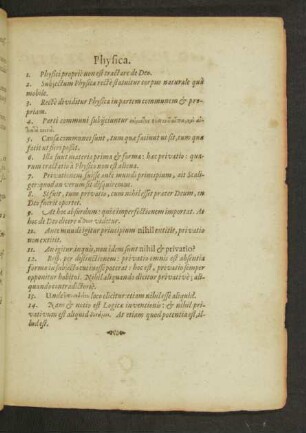 Physica.
1. Physici propriè non est tractare de Deo.
2. Subjectum Physicæ rectè statuitur corpus naturale quà
mobile.
3. Rectè dividitur Physica in partem communem & pro-
priam.
4. Parti communi subjiciuntur
5. Causæ communes sunt, tum quæ faciunt ut sit, tum quæ
facit ut fieri possit.
6. Illæ sunt materia prima & forma: hæc privatio: qua-
rum tractatio à Physica non est aliena.
7. Privationem fuisse ante mundi principium, ait Scali-
ger: quod an verum sit disquirimus.
8. Si fuit, tum privatio, cum nihil esset præter Deum, in
Deo fuerit oportet.
9. At hoc absurdum: quia imperfectionem importat. At
hoc de Deo dicere
10. Ante mundi igitur principium nihil extitit, privatio
non extitit.
11. An igitur, inquis, non idem sunt nihil & privatio?
12. Resp. per distinctionem: privatio omnis est absentia
formæ in subjecto cui inesse poterat: hoc est, privatio semper
opponitur habitui. Nihil aliquando dicitur privativè; ali-
quando contradictoriè.
13. Unde loco dicitur etiam nihil esse aliquid.
14. Nam & motio est Logicæ inventionis: & nihil pri-
vativum est aliquod At etiam quod potentia est, il-
lud est.